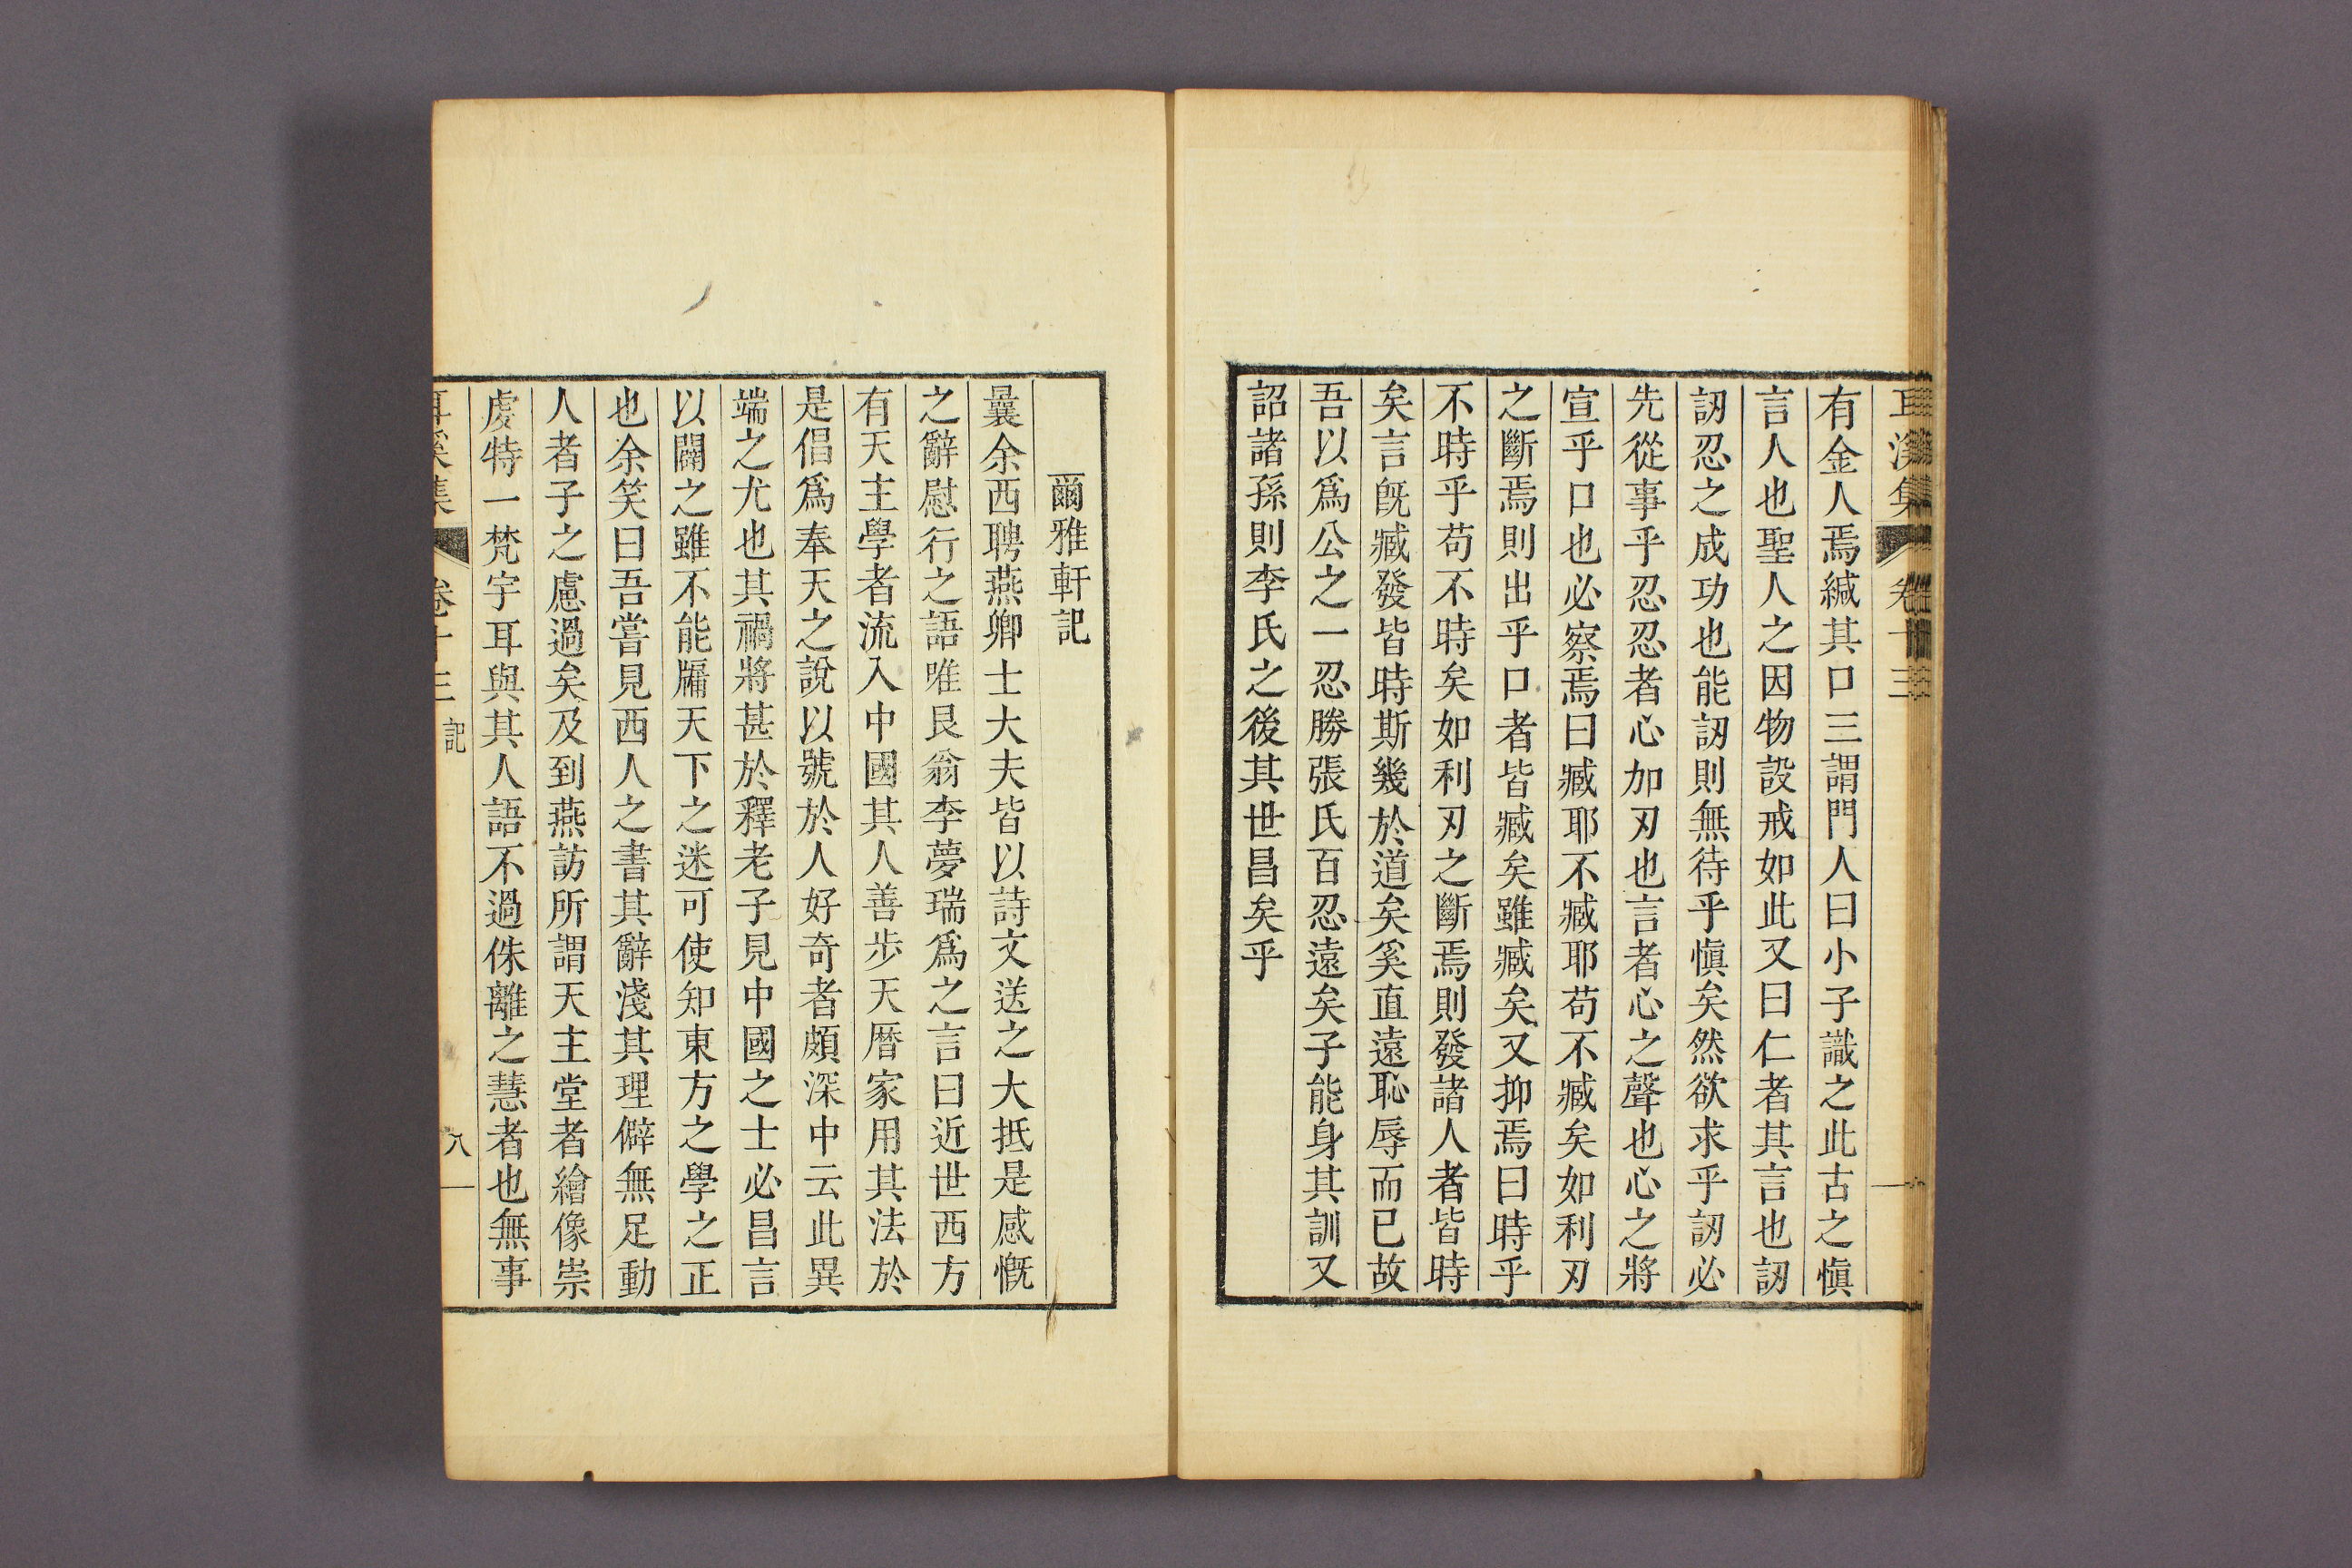 耳溪集 卷十三
有金人焉緘其口三謂門人曰小子識之此古之愼
言人也聖人之因物設戒如此又曰仁者其言也訒
訒忍之成功也能訒則無待乎愼矣然欲求乎訒必
先從事乎忍忍者心加刃也言者心之聲也心之將
宣乎口也必察焉曰臧耶不臧耶苟不臧矣如利刃
之斷焉則出乎口者皆臧矣雖臧矣又抑焉曰時乎
不時乎苟不時矣如利刃之斷焉則發諸人者皆時
矣言旣臧發皆時斯幾於道矣奚直遠恥辱而已故
吾以爲公之一忍勝張氏百忍遠矣子能身其訓又
詔諸孫則李氏之後其世昌矣乎
爾雅軒記
曩余西聘燕卿士大夫皆以詩文送之大抵是感慨
之辭慰行之語唯艮翁李夢瑞爲之言曰近世西方
有天主學者流入中國其人善步天曆家用其法於
是倡爲奉天之說以號於人好奇者頗深中云此異
端之尤也其禍將甚於釋老子見中國之士必昌言
以闢之雖不能牖天下之迷可使知東方之學之正
也余笑曰吾嘗見西人之書其辭淺其理僻無足動
人者子之慮過矣及到燕訪所謂天主堂者繪像崇
虔特一梵宇耳與其人語不過侏離之慧者也無事
耳溪集 卷十三 記 八